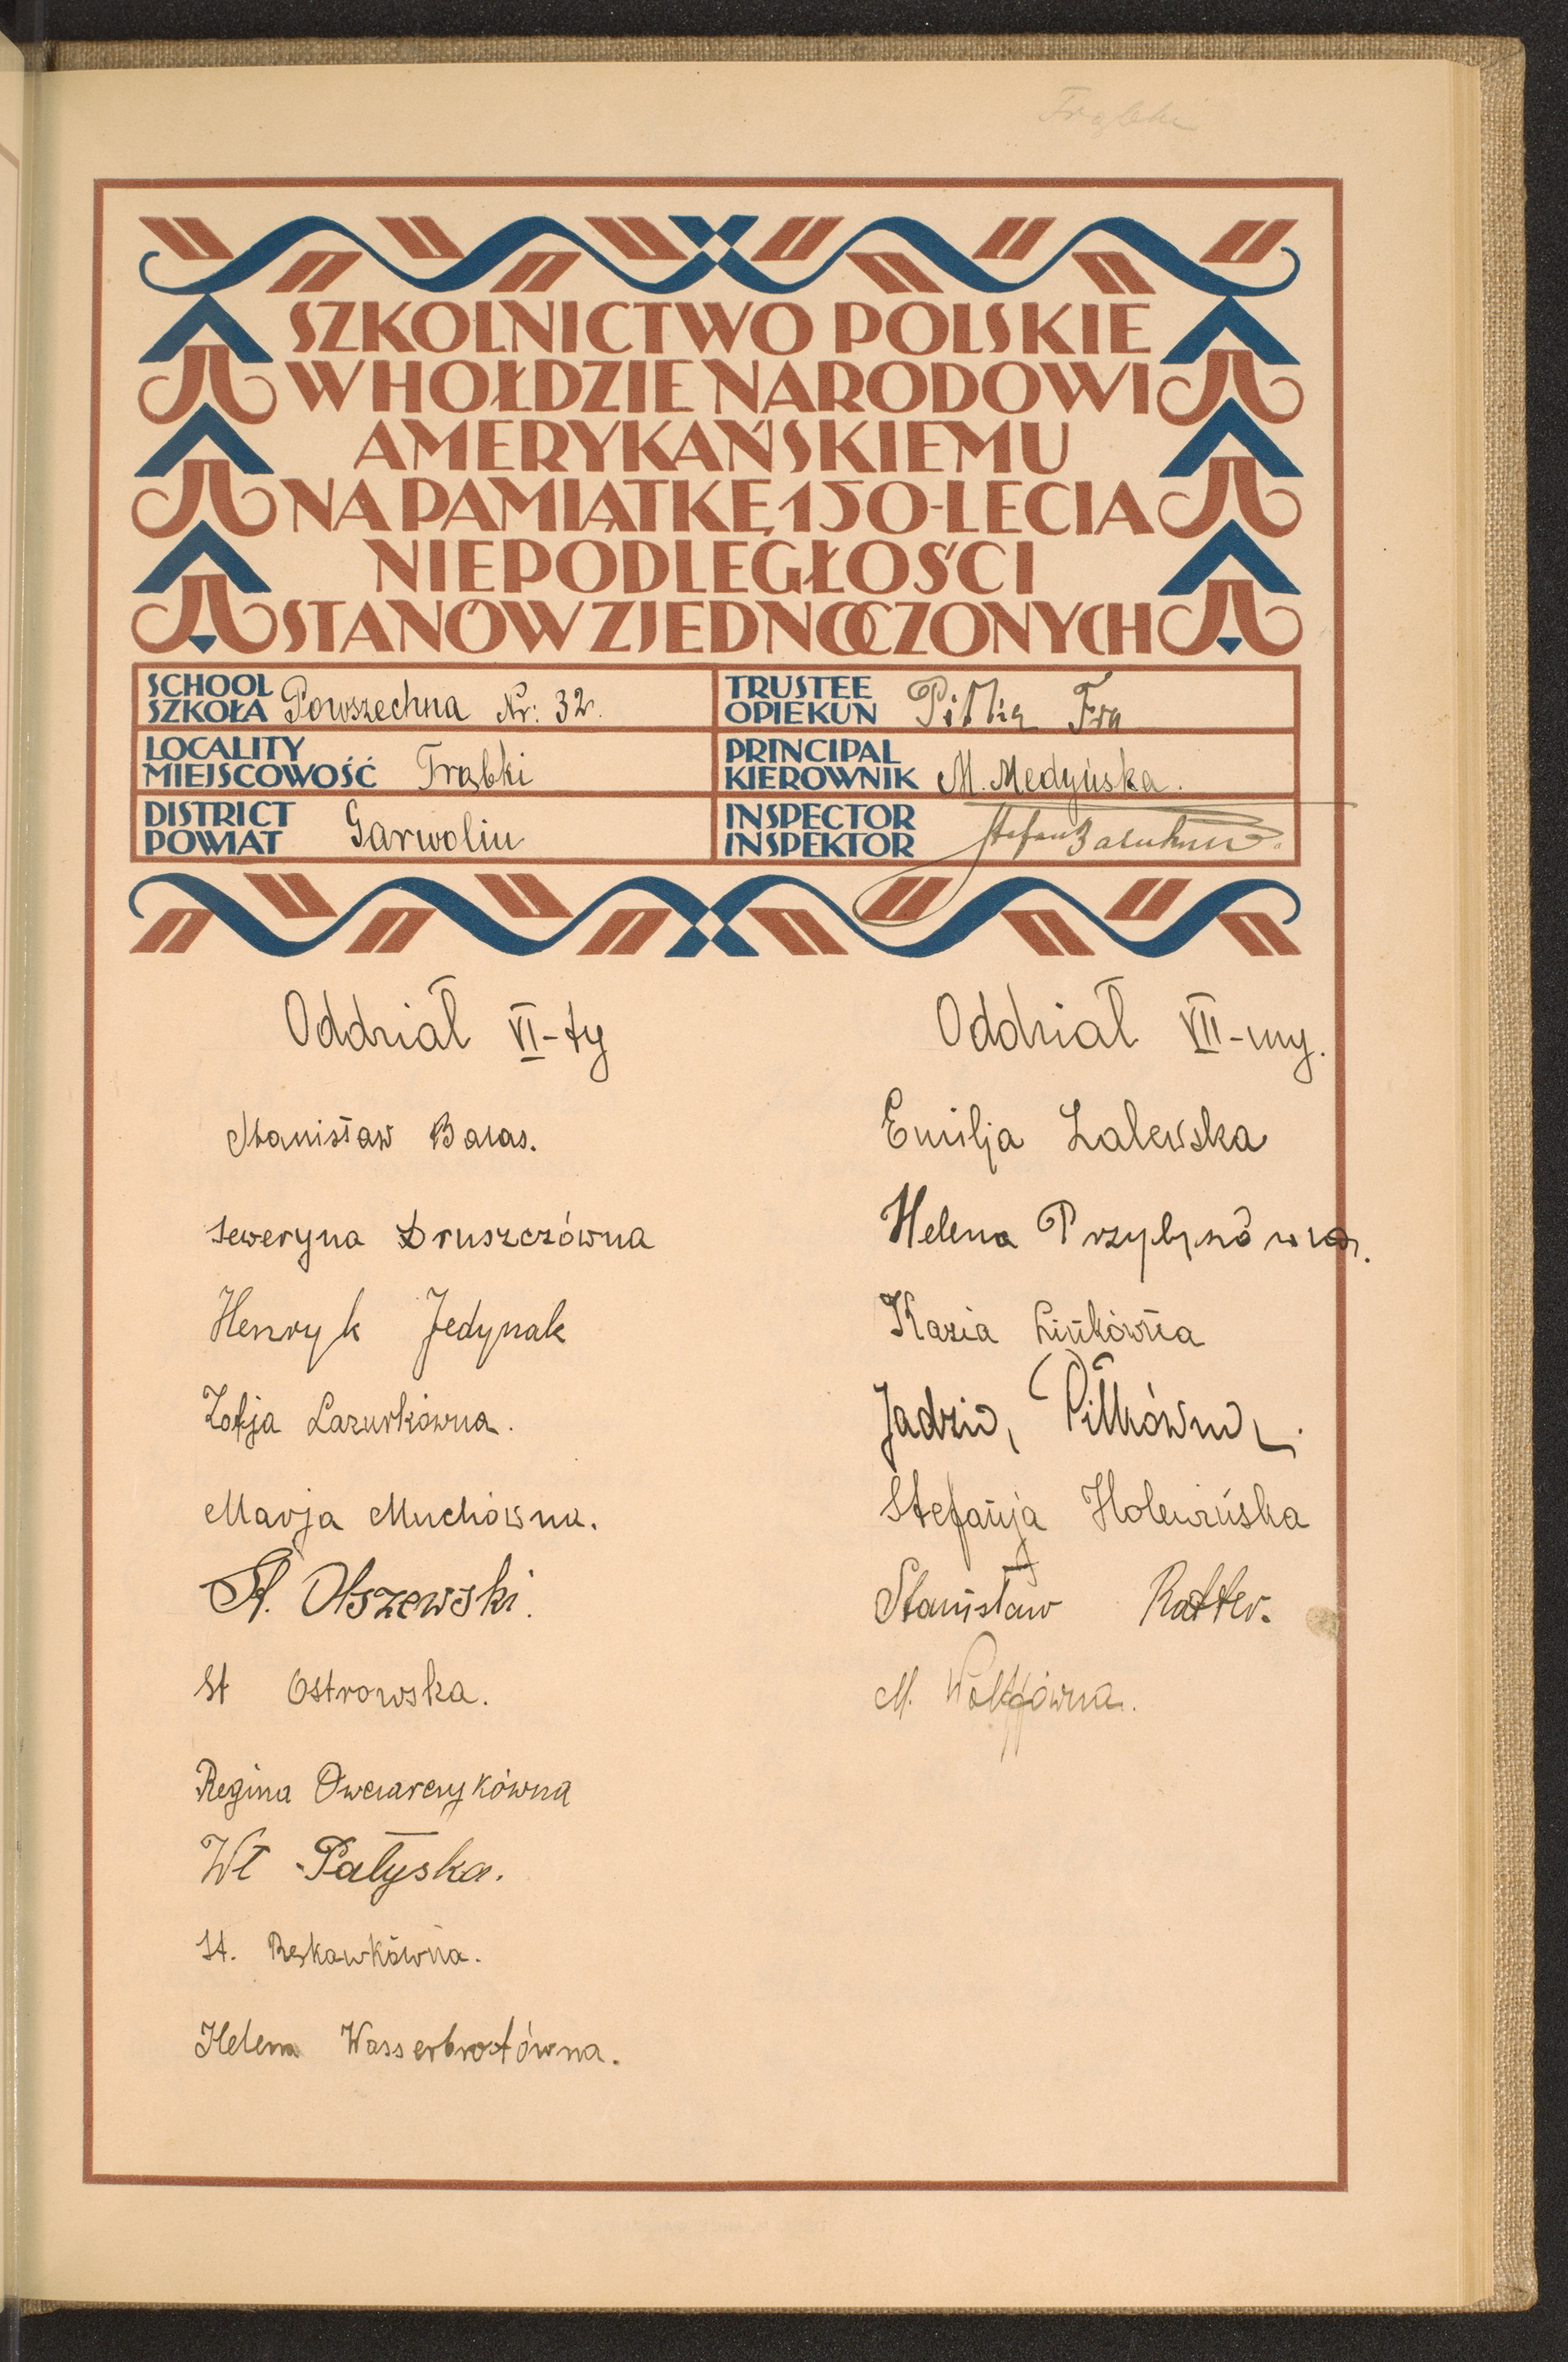 Trąbki
SZKOLNICTWO POLSKIE
W HOŁDZIE NARODOWI
AMERYKAŃSKIEMU
NA PAMIĄTKĘ 150-LECIA
NIEPODLEGŁOŚCI
STANÓW ZJEDNOCZONYCH
SCHOOL
SZKOŁA Powszechna Nr: 32.
LOCALITY
MIEJSCOWOŚĆ Trąbki
DISTRICT
POWIAT Garwolin
TRUSTEE
OPIEKUN Fra
PRINCIPAL
KIEROWNIK M. Medyńska.
INSPECTOR
INSPEKTOR Stefan
Oddział VI-ty
Stanisław Baras.
Seweryna Druszczówna
Henryk Jedynak
Zofja Lazurkówna.
Marja Muchówna.
St. Olszewski.
St Ostrowska.
Regina Owczarczykówna
Wł Pałyska.
St. Rękawkówna.
Helena Wasserbrotówna.
Oddział VII-my.
Emilja Zalewska
Helena
Kazia
Jadzia, Piłkówna.
Stefanja Holewińska
Stanisław Rotter.
M. Wolffówna.